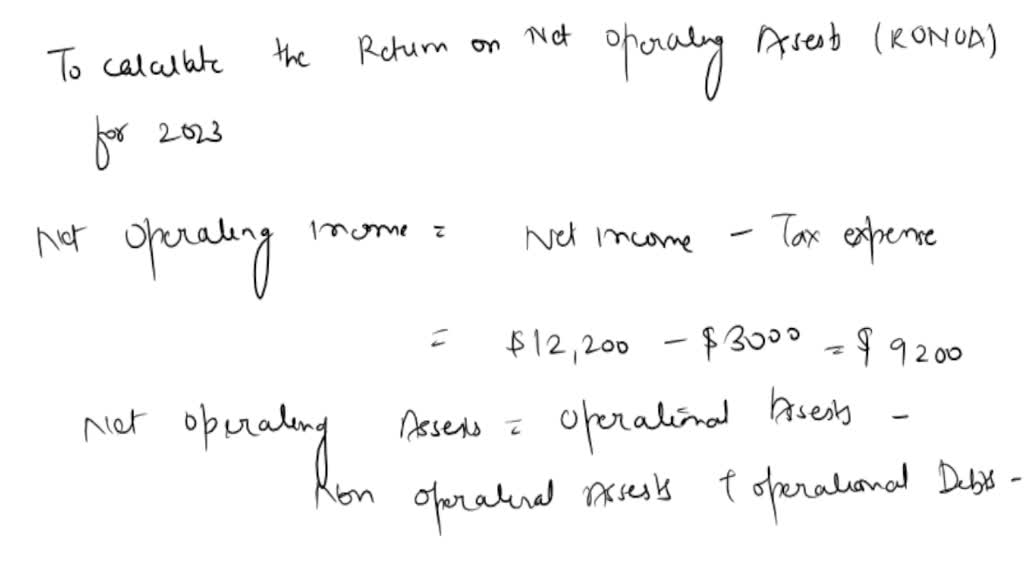 To calculate the Return on Net Operating Assets (RONOA)
for 2023
Net Operating Income = Net Income - Tax expense
= $12,200 - $3000 = $9200
Net operating Assets = Operational Assets -
Non operational Assets + operational Debts -